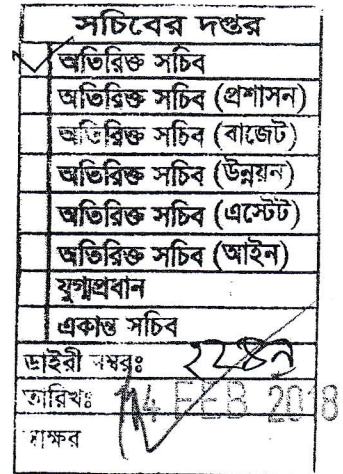 সচিবের দপ্তর
অতিরিক্ত সচিব
অতিরিক্ত সচিব (প্রশাসন)
অতিরিক্ত সচিব (বাজেট)
অতিরিক্ত সচিব (উন্নয়ন)
অতিরিক্ত সচিব (এস্টেট)
অতিরিক্ত সচিব (আইন)
যুগ্মপ্রধান
একান্ত সচিব
ডাইরী নম্বরঃ
তারিখঃ 14 FEB 2018
সাক্ষর